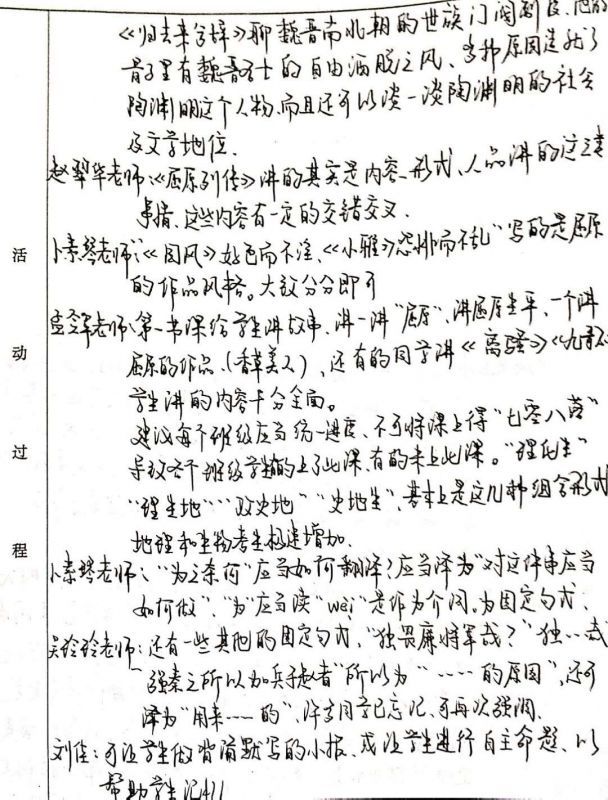 《归去来兮辞》聊魏晋南北朝的世族门阀制度、他的
骨子里有魏晋名士的自由洒脱之风、当那原因造就了
陶渊明这个人物,而且还可以谈一谈陶渊明的社会
及文学地位.
赵翠华老师:《屈原列传》讲的其实是内容、形式、人品讲的这三者
事情.这些内容有一定的交错交叉.
卜素琴老师:“《国风》好色而不淫、《小雅》怨诽而不乱”写的是屈原
的作品风格。大致分分即可
老师:第一节课给学生讲故事,讲一讲“屈原”,讲屈原生平、一个讲
屈原的作品.(香草美人),还有的同学讲《离骚》《九歌》
学生讲的内容十分全面。
建议每个班级应当统一进度、不可将课上得“七零八落”
导致各个班级学生有的上了此课.有的未上此课。“理化生”
“理生地”“政史地”“史地生”,基本上是这几种组合形式
地理和生物考生极速增加.
卜素琴老师:“为之奈何”应当如何翻译?应当译为“对这件事应当
如何做”、“为”应当读“wei”是作为介词。为固定句式、
吴铃铃老师:还有一些其他的固定句式,“独畏廉将军哉?”独…哉
“强秦之所以加兵于赵者”所以为“……的原因”,还可
译为“用来……的”,许多同学已忘记.可再次强调.
刘佳:可让学生做背诵默写的小报、或让学生进行自主命题、以
帮助学生记
活
动
过
程